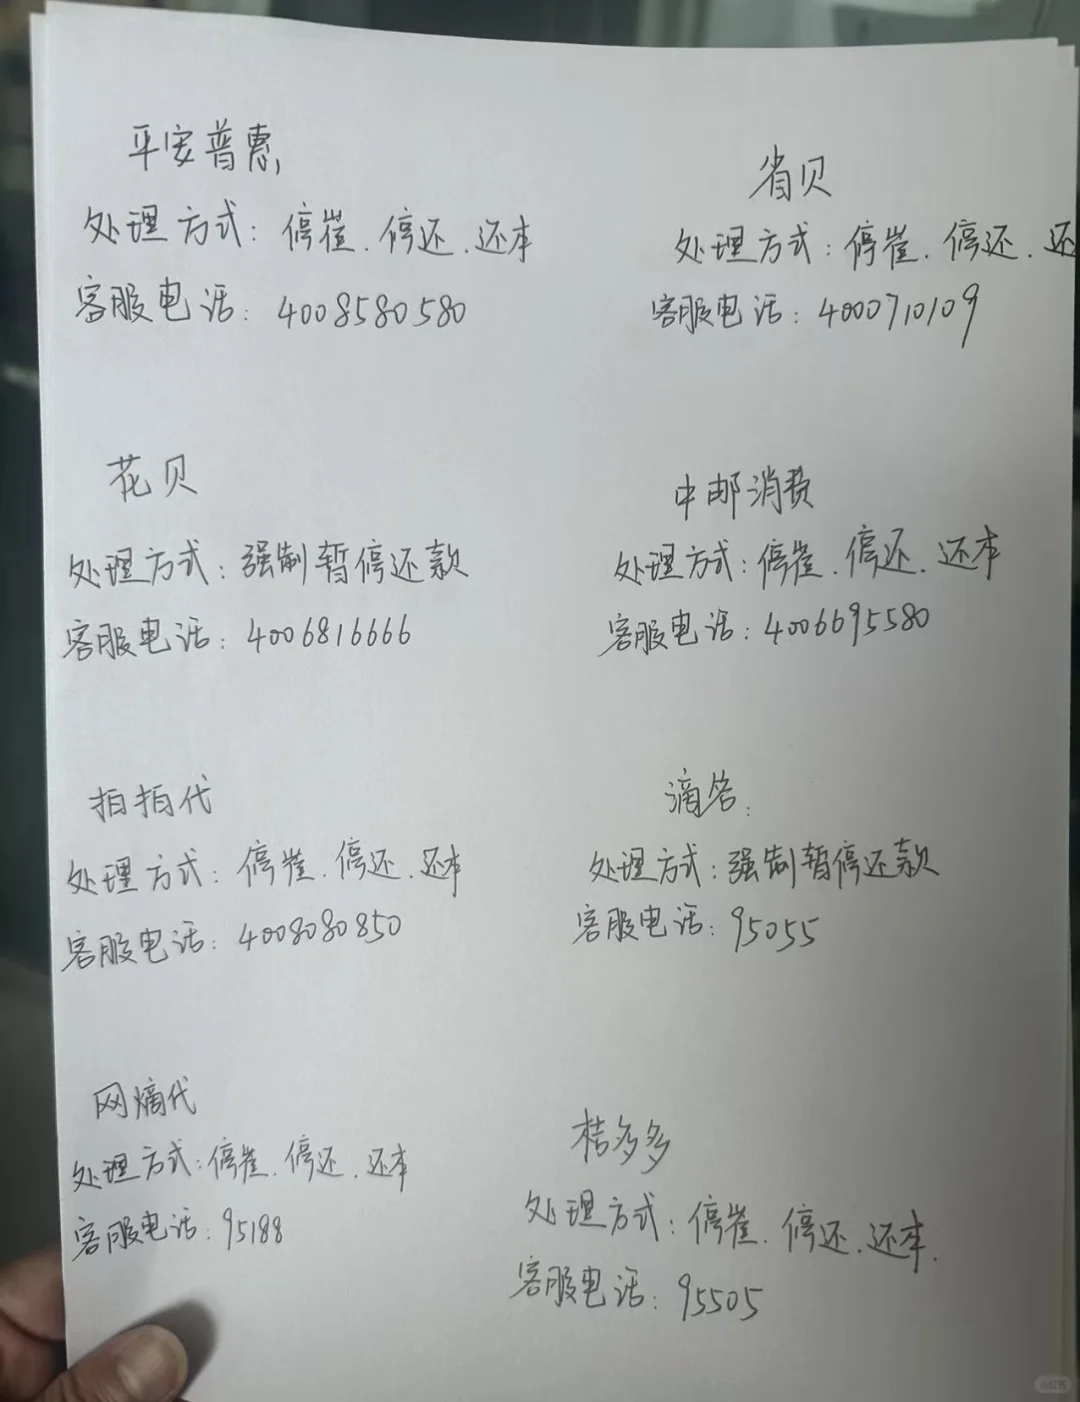 平安普惠,
处理方式：停崔．停还．还本
客服电话：4008580580
省贝
处理方式：停崔．停还．还
客服电话：4000710109
花贝
处理方式：强制暂停还款
客服电话：4006816666
中邮消费
处理方式：停崔．停还．还本
客服电话：4006695580
拍拍代
处理方式：停崔．停还．还本
客服电话：4008080850
滴答．
处理方式：强制暂停还款
客服电话：95055
网熵代
处理方式：停崔．停还．还本
客服电话：95188
桔多多
处理方式：停崔．停还．还本．
客服电话：95505
小红书